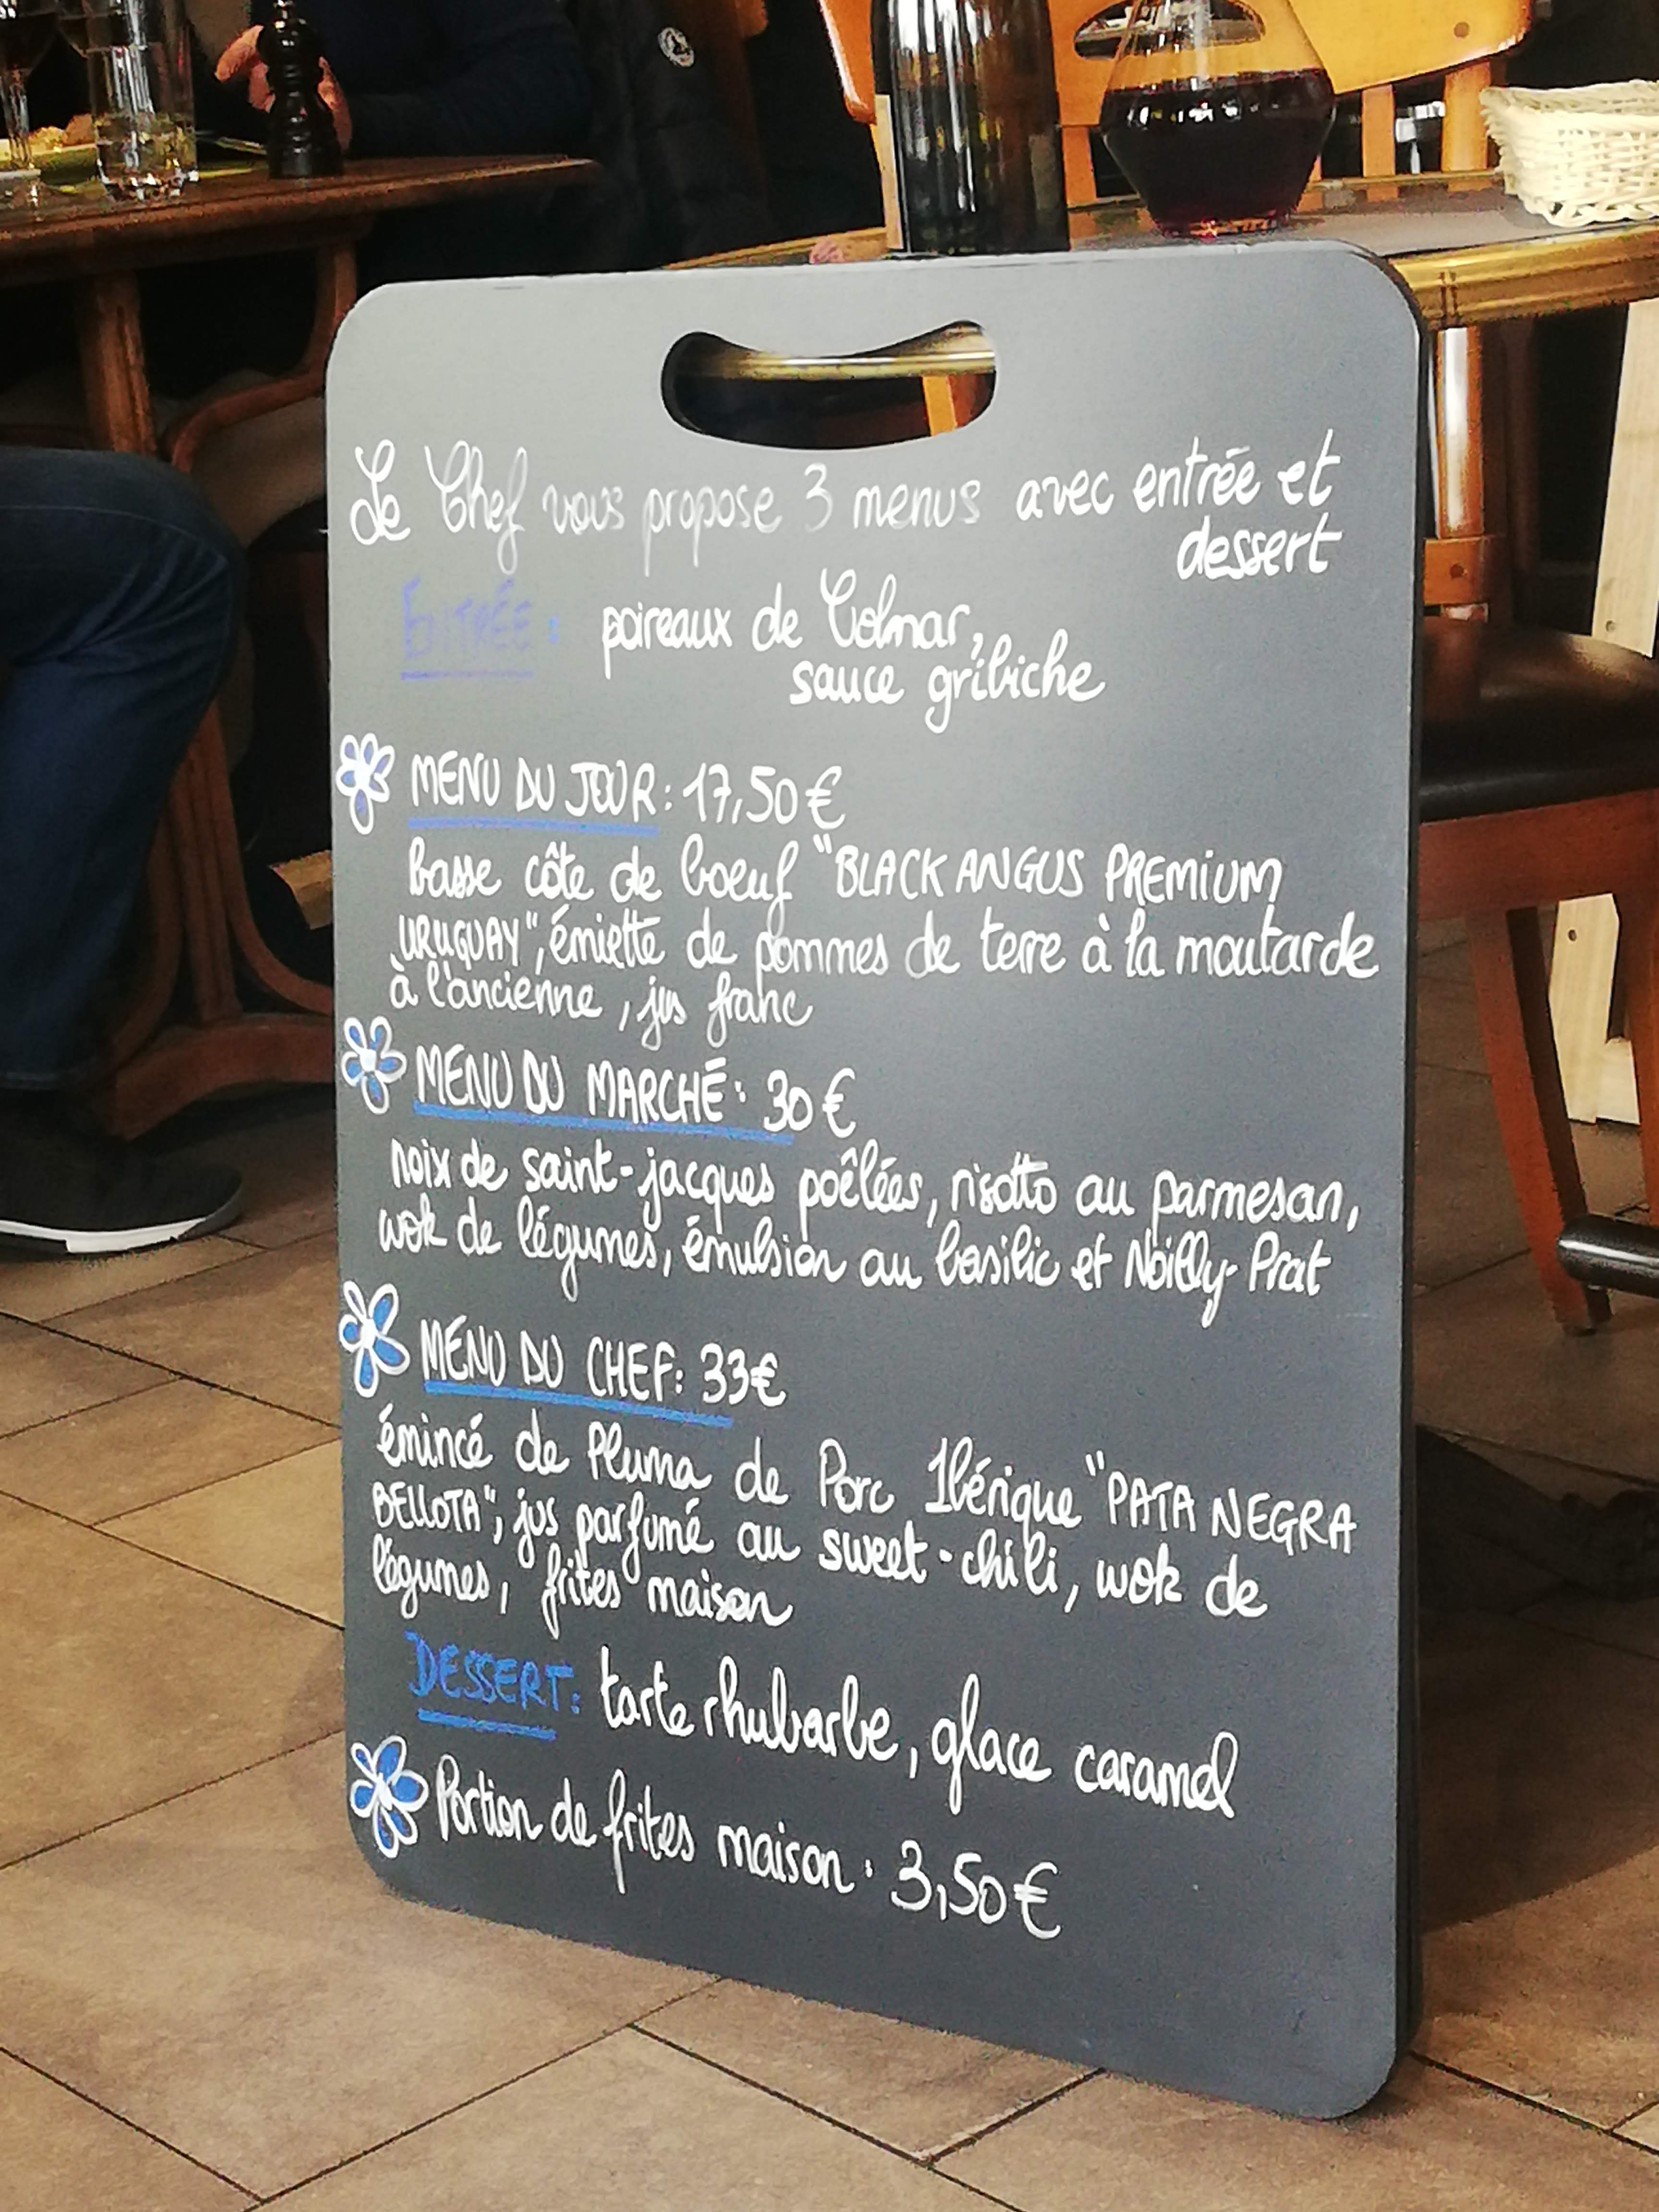 Le Chef vous propose 3 menus avec entrée et
dessert
ENTRÉE : poireaux de Colmar,
sauce gribiche
MENU DU JOUR : 17,50 €
basse côte de boeuf "BLACK ANGUS PREMIUM
URUGUAY", émiette de pommes de terre à la moutarde
à l'ancienne, jus franc
MENU DU MARCHÉ : 30 €
noix de saint-jacques poêlées, risotto au parmesan,
wok de légumes, émulsion au basilic et Noilly-Prat
MENU DU CHEF : 33€
émincé de Pluma de Porc Ibérique "PATA NEGRA
BELLOTA", jus parfumé au sweet-chili, wok de
légumes, frites maison
DESSERT : tarte rhubarbe, glace caramel
Portion de frites maison : 3,50 €